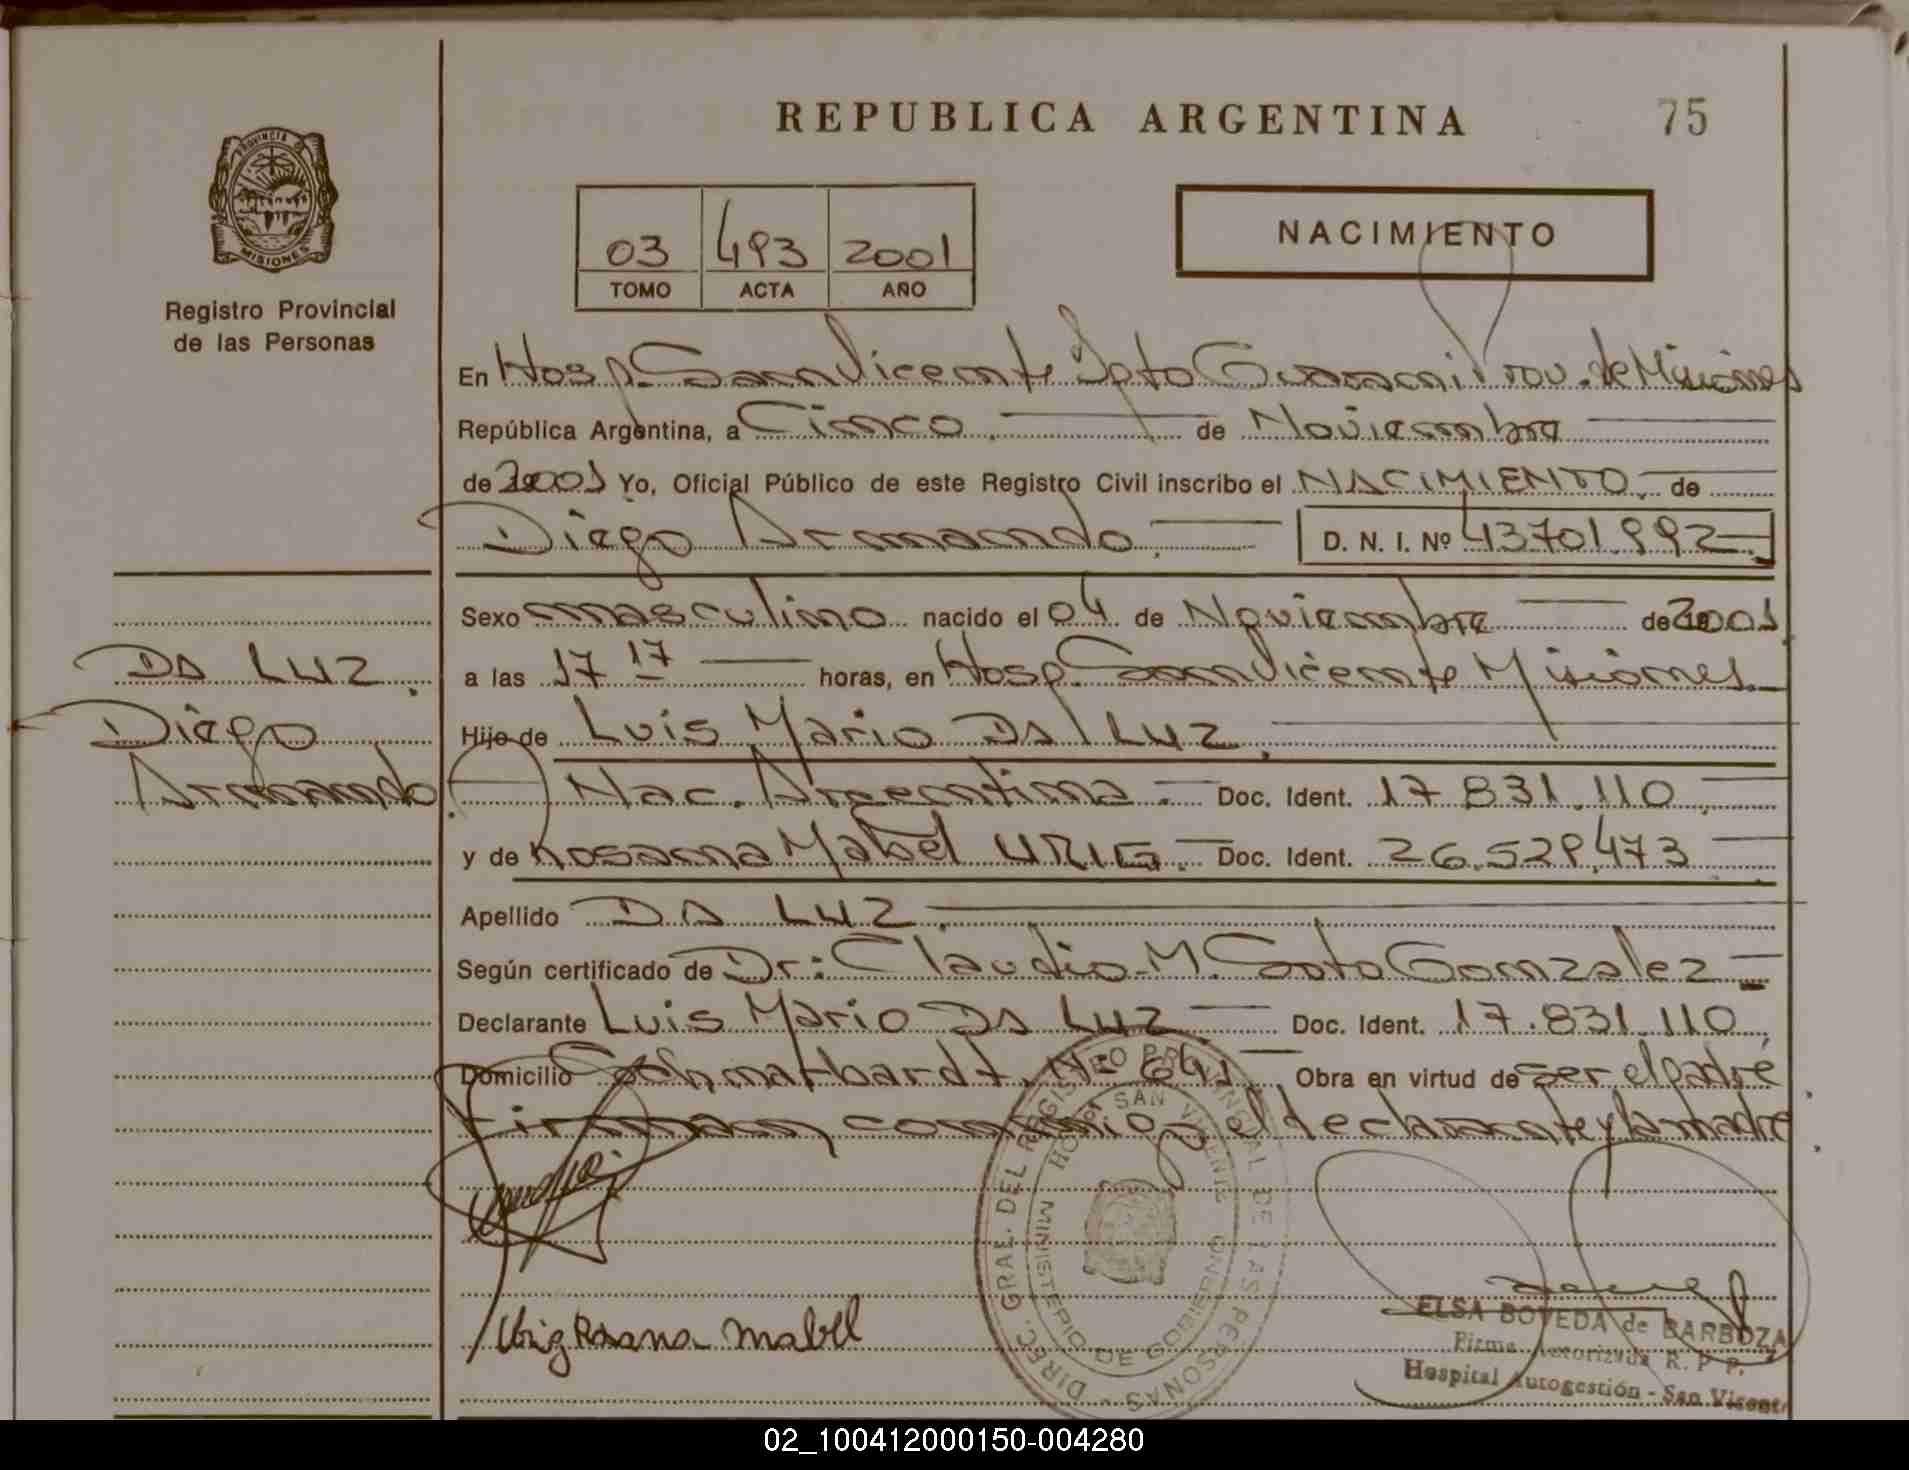 REPUBLICA ARGENTINA
75
PROVINCIA D
MISIONES
Registro Provincial
de las Personas
03 493 2001
TOMO ACTA AÑO
NACIMIENTO
En Hosp. San Vicente Dpto Guarani Prov. de Misiones
República Argentina, a Cinco de Noviembre
de 2001 Yo, Oficial Público de este Registro Civil inscribo el NACIMIENTO de
Diego Armando D. N. I. Nº 43701.992
Sexo masculino nacido el 04 de Noviembre de 2001
DA LUZ.
a las 17 17 horas, en Hosp. San Vicente Misiones
Diego
Hijo de Luis Mario DA LUZ.
Armando
Nac. Argentina. Doc. Ident. 17 831.110
y de Rosana Mabel URIG. Doc. Ident. 26.529.473
Apellido DA LUZ.
Según certificado de Dr: Claudio M. Soto Gonzalez
Declarante Luis Mario DA LUZ Doc. Ident. 17.831.110
Domicilio Schmathardt. Nº 641 Obra en virtud de ser el padre
Firman conmigo el declarante y la madre
DIREC. GRAL. DEL REGISTRO PROVINCIAL DE LAS PERSONAS
SAN VICENTE
MINISTERIO DE GOBIERNO
Urig Rosana Mabel
ELSA BOVEDA de BARBOZA
Firma Autorizada R. P. P.
Hospital Autogestión - San Vicente
02_100412000150-004280